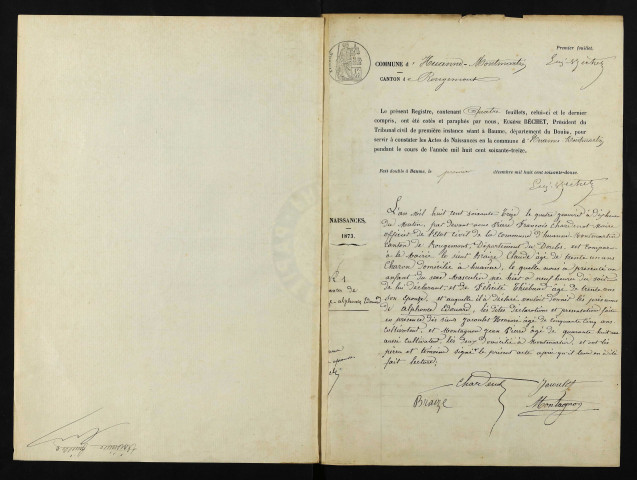 Premier feuillet.
COMMUNE d' Huanne-Montmartin
CANTON d Rougemont
Eug. Béchet
Le présent Registre, contenant quatre feuillets, celui-ci et le dernier
compris, ont été cotés et paraphés par nous, Eugène BÉCHET, Président du
Tribunal civil de première instance séant à Baume, département du Doubs, pour
servir à constater les Actes de Naissances en la commune d'Huanne Montmartin
pendant le cours de l'année mil huit cent soixante-treize.
Fait double à Baume, le premier décembre mil huit cent soixante-douze.
Eug. Béchet
NAISSANCES.
1873.
N° 1.
alphonse Edouard
L'an mil huit cent soixante Treize le quinze janvier à dix heures
du Matin, par devant nous Pierre François Chardenot Maire
officier de l'Etat Civil de la commune d'huanne Montmartin
Canton de Rougemont, Département du Doubs, est comparu
à la Mairie le sieur Braize Claude âgé de trente ans
Charon domicilié à huanne, le quelle nous a présenté un
enfant du sexe Masculin né hier à neuf heures du
de lui déclarant et de Félicité Thiebaud âgé de trente ans
son épouse et auquelle il a déclaré vouloir donner les prénoms
d' alphonse Edouard, les dites déclarations et présentation faite
en présence des sieurs âgé de cinquante cinq ans
cultivateur, et Montagnon jean Pierre âgé de quarante huit ans
aussi cultivateur, les deux domicilié à Montmartin, et ont les
père et témoins signé le présent acte après qu'il leur en a été
fait lecture;
Braize
Montagnon